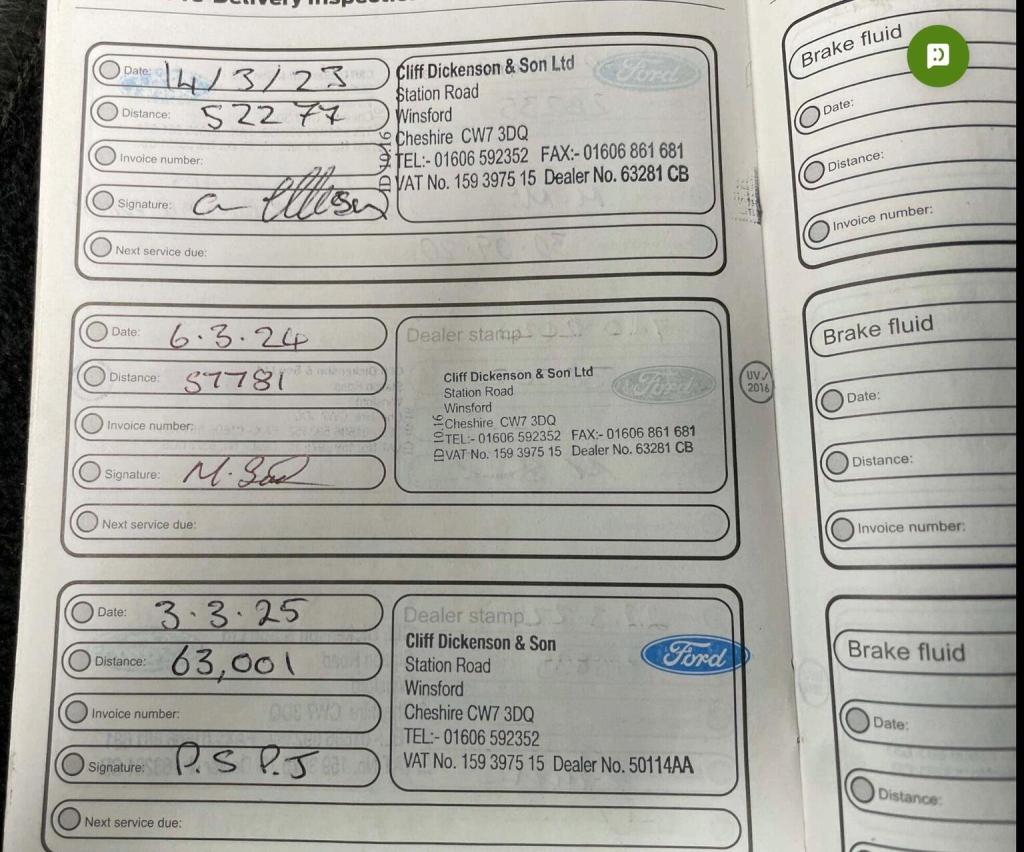 Date: 14/3/23
Distance: 52277
Invoice number:
Signature:
Next service due:
Cliff Dickenson & Son Ltd
Ford
Station Road
Winsford
Cheshire CW7 3DQ
TEL:- 01606 592352 FAX:- 01606 861 681
VAT No. 159 3975 15 Dealer No. 63281 CB
Date: 6.3.24
Distance: 57781
Invoice number:
Signature:
Next service due:
Dealer stamp
Cliff Dickenson & Son Ltd
Ford
Station Road
Winsford
Cheshire CW7 3DQ
TEL:- 01606 592352 FAX:- 01606 861 681
VAT No. 159 3975 15 Dealer No. 63281 CB
UV✓
2016
Date: 3.3.25
Distance: 63,001
Invoice number:
Signature: P.S P.J
Next service due:
Dealer stamp
Cliff Dickenson & Son
Ford
Station Road
Winsford
Cheshire CW7 3DQ
TEL:- 01606 592352
VAT No. 159 3975 15 Dealer No. 50114AA
Brake fluid
Date:
Distance:
Invoice number:
Brake fluid
Date:
Distance:
Invoice number:
Brake fluid
Date:
Distance: